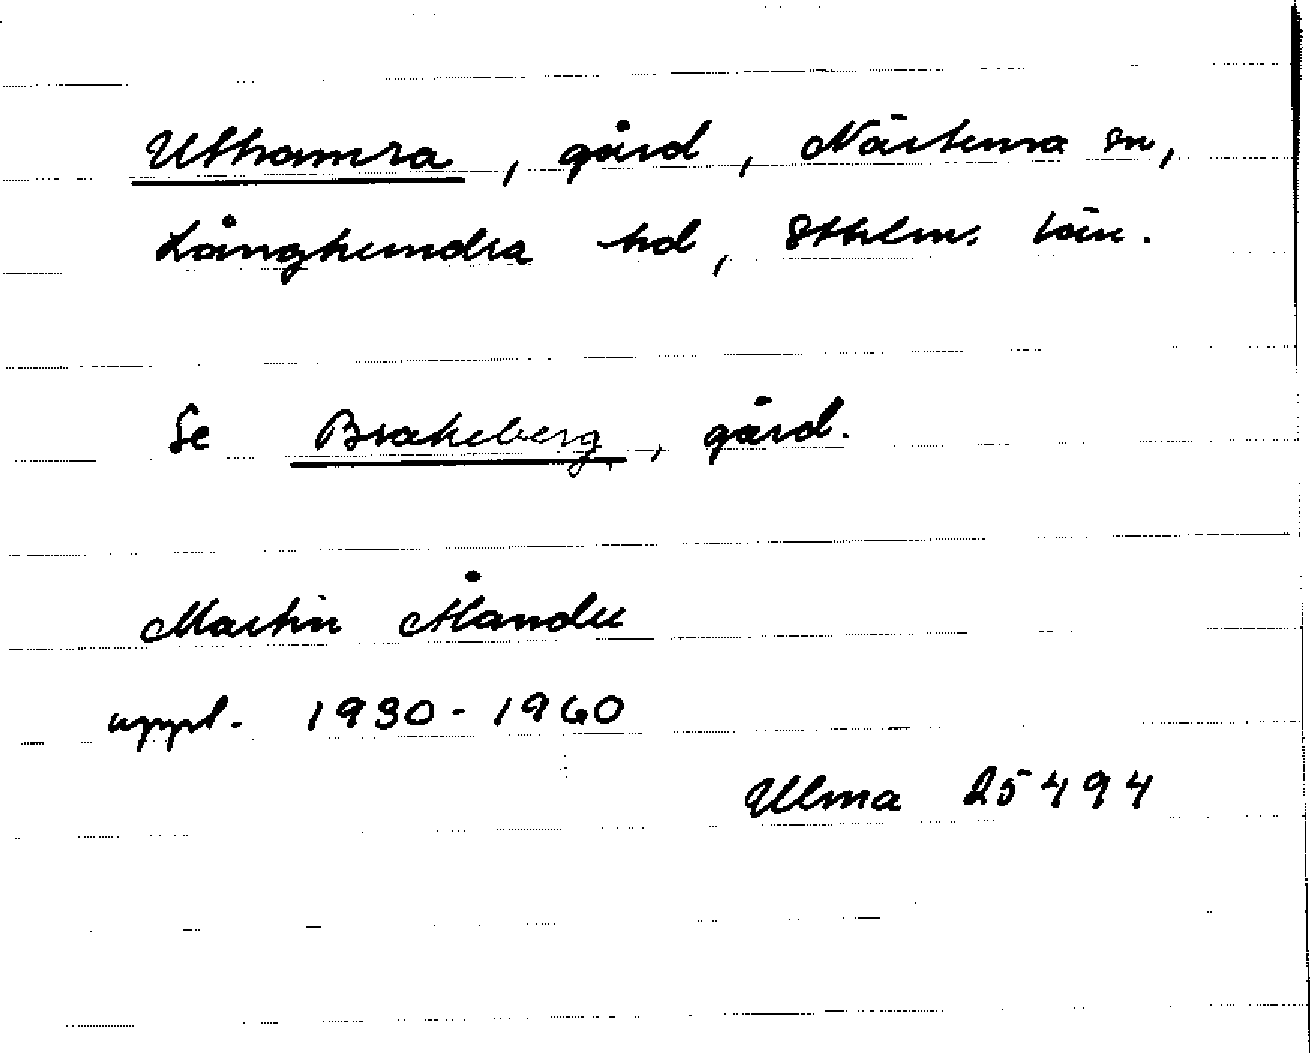 Uthamra, gård, Närtuna sn,
Långhundra hd, Sthlm. län.
Se Brakeberg, gård.
Martin
uppt. 1930-1960
Ulma 25494